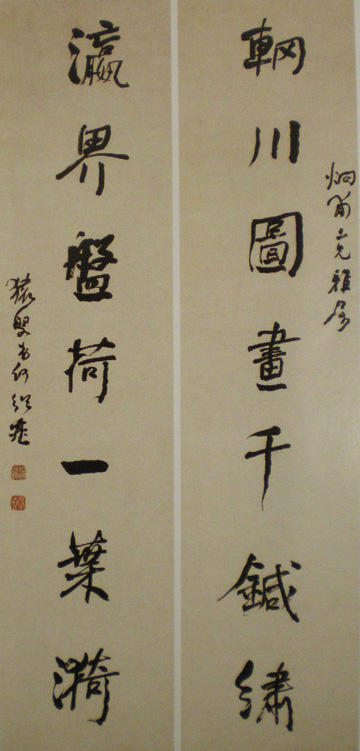 輞川圖畫千鍼繡
炯甫三兄雅屬
瀛界盤荷一葉漪
猨叟弟何紹基